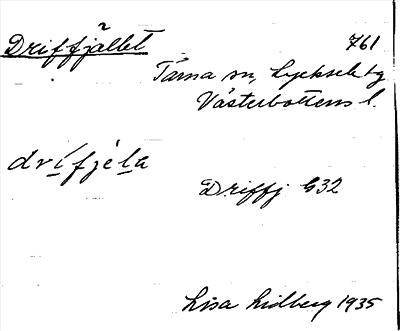 Driffjället 761
Tärna sn, Lycksele tg
Västerbottens l.
drífjéla
Driffj G32
Lisa Lidberg 1935